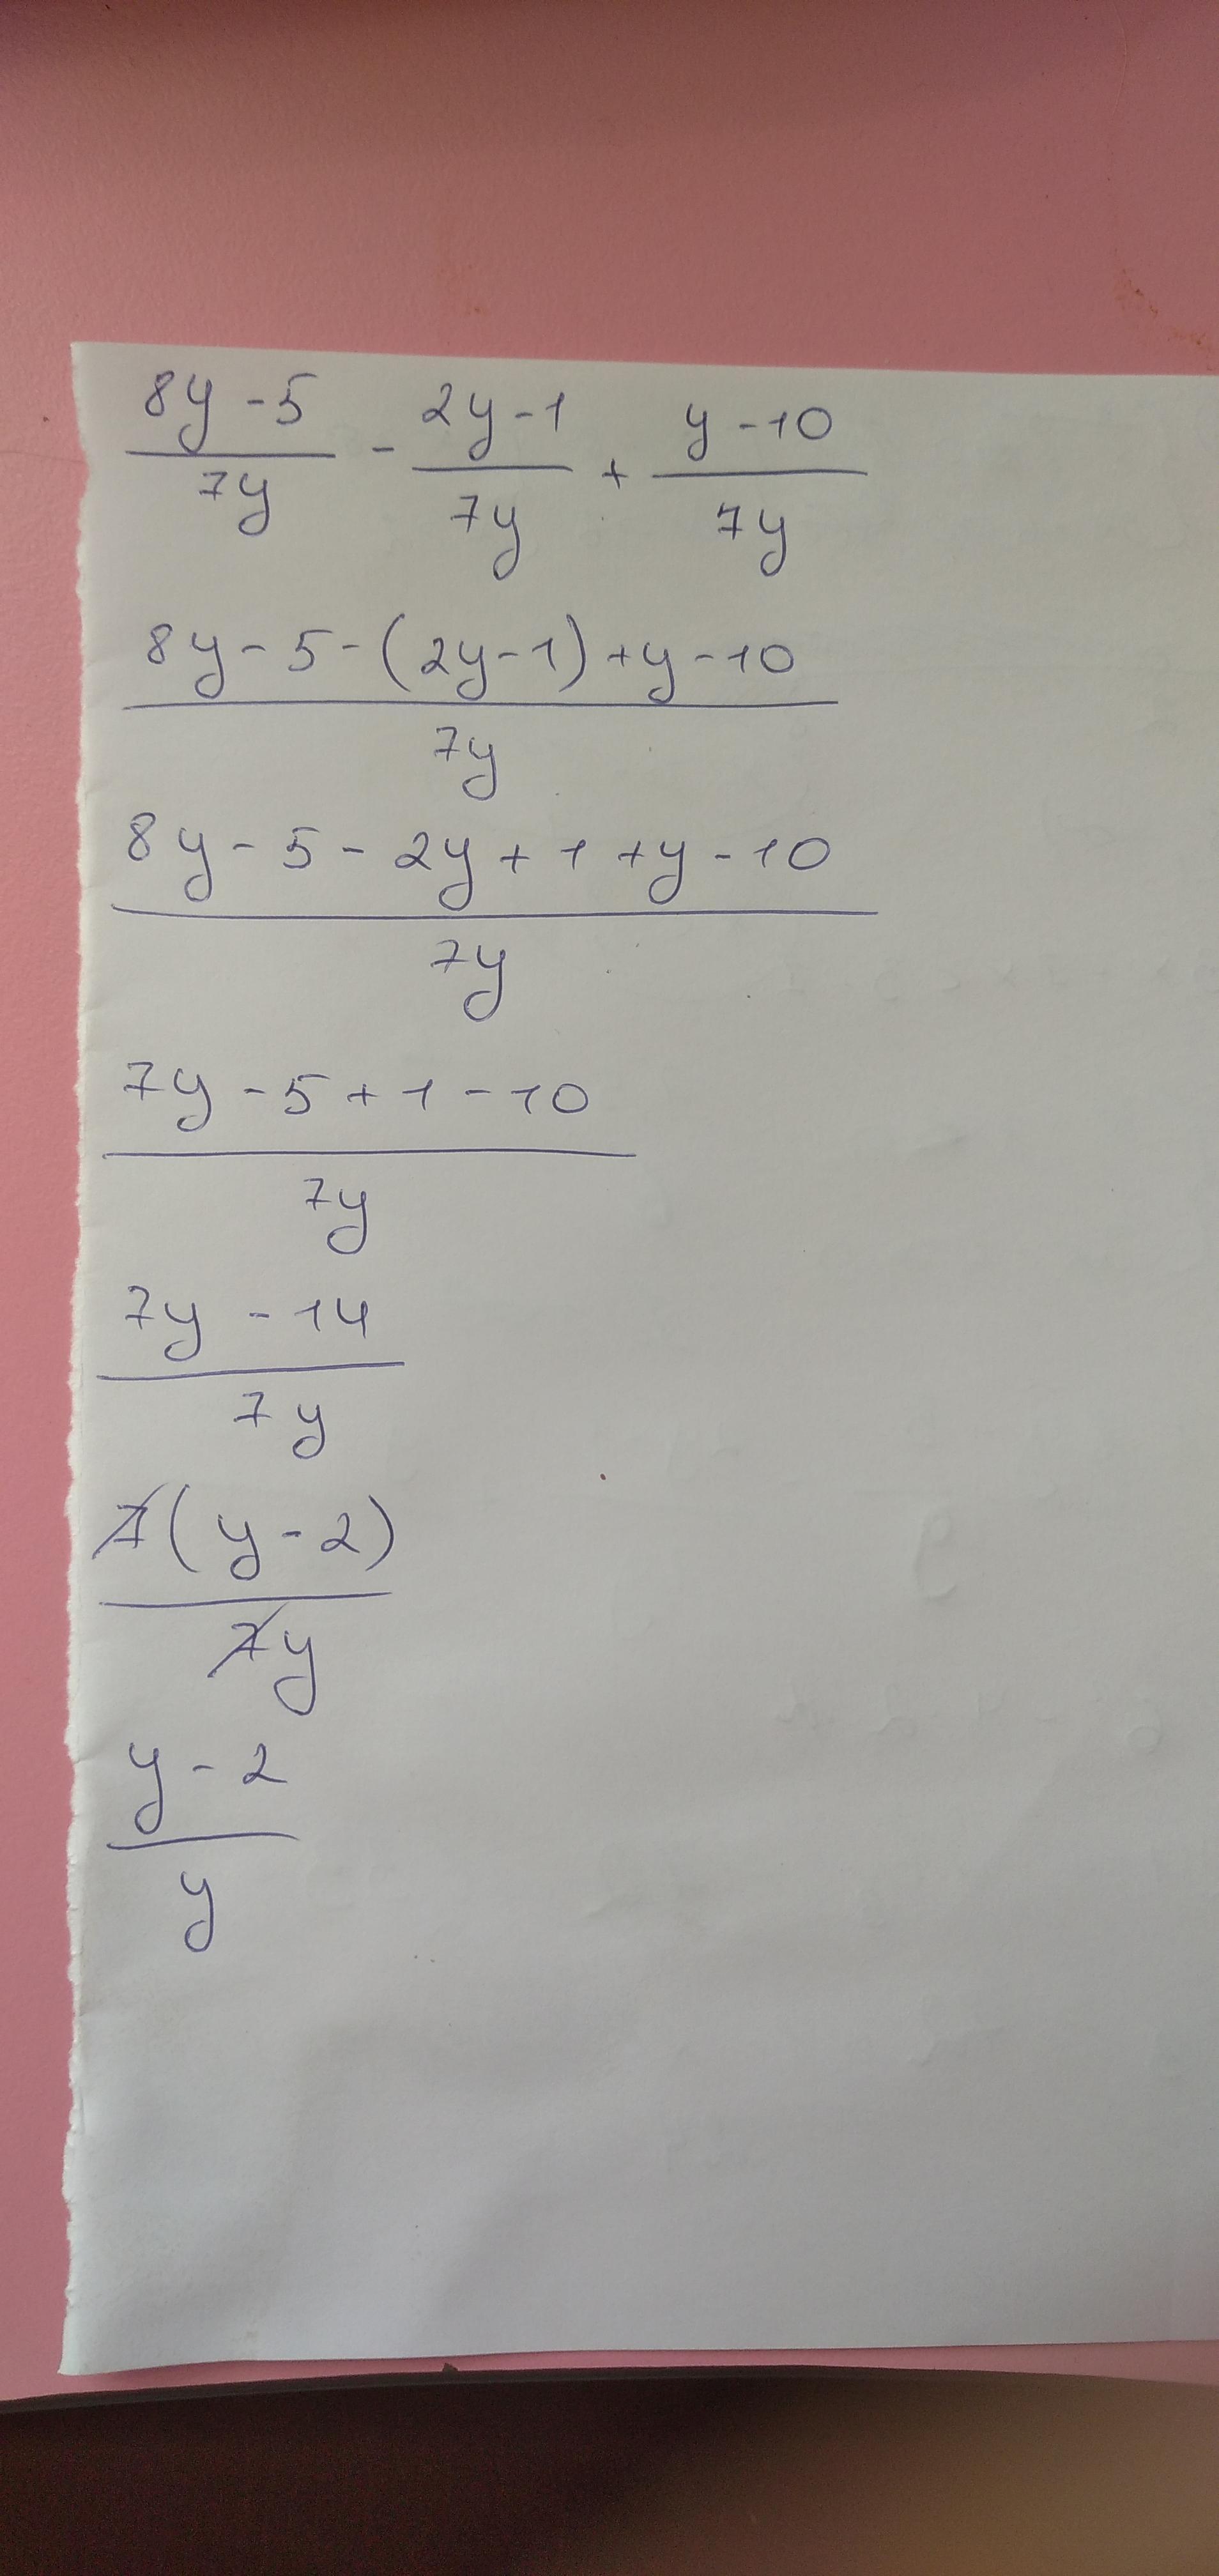 (8y - 5)/(7y) - (2y - 1)/(7y) + (y - 10)/(7y)
(8y - 5 - (2y - 1) + y - 10)/(7y)
(8y - 5 - 2y + 1 + y - 10)/(7y)
(7y - 5 + 1 - 10)/(7y)
(7y - 14)/(7y)
(7(y - 2))/(7y)
(y - 2)/y